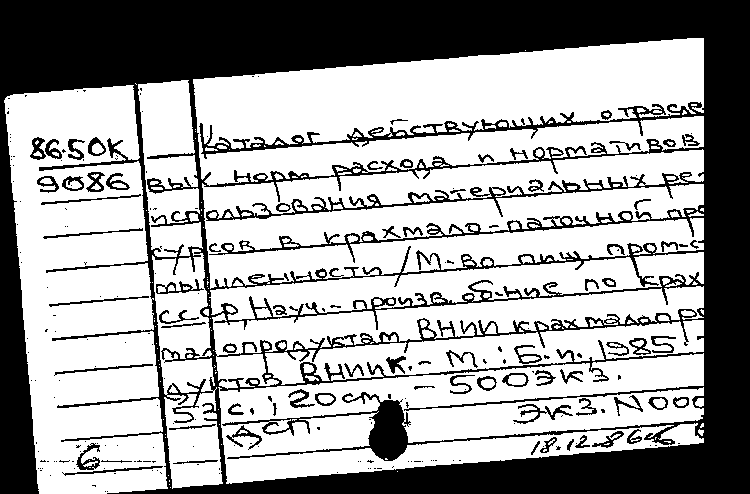 86.50К Каталог действующих отрасле
9086 вых норм расхода и нормативов
использования материальных ре-
сурсов в крахмало-паточной про
мышленности / М-во пищ. пром-с
СССР, Науч.-произв. об-ние по крах
малопродуктам, ВНИИ крахмалопро
дуктов ВНИИК. - М.: Б. и., 1985. -
52 с.; 20 см. - 500 экз.
ДСП. Экз. N 000
18.12.86
6